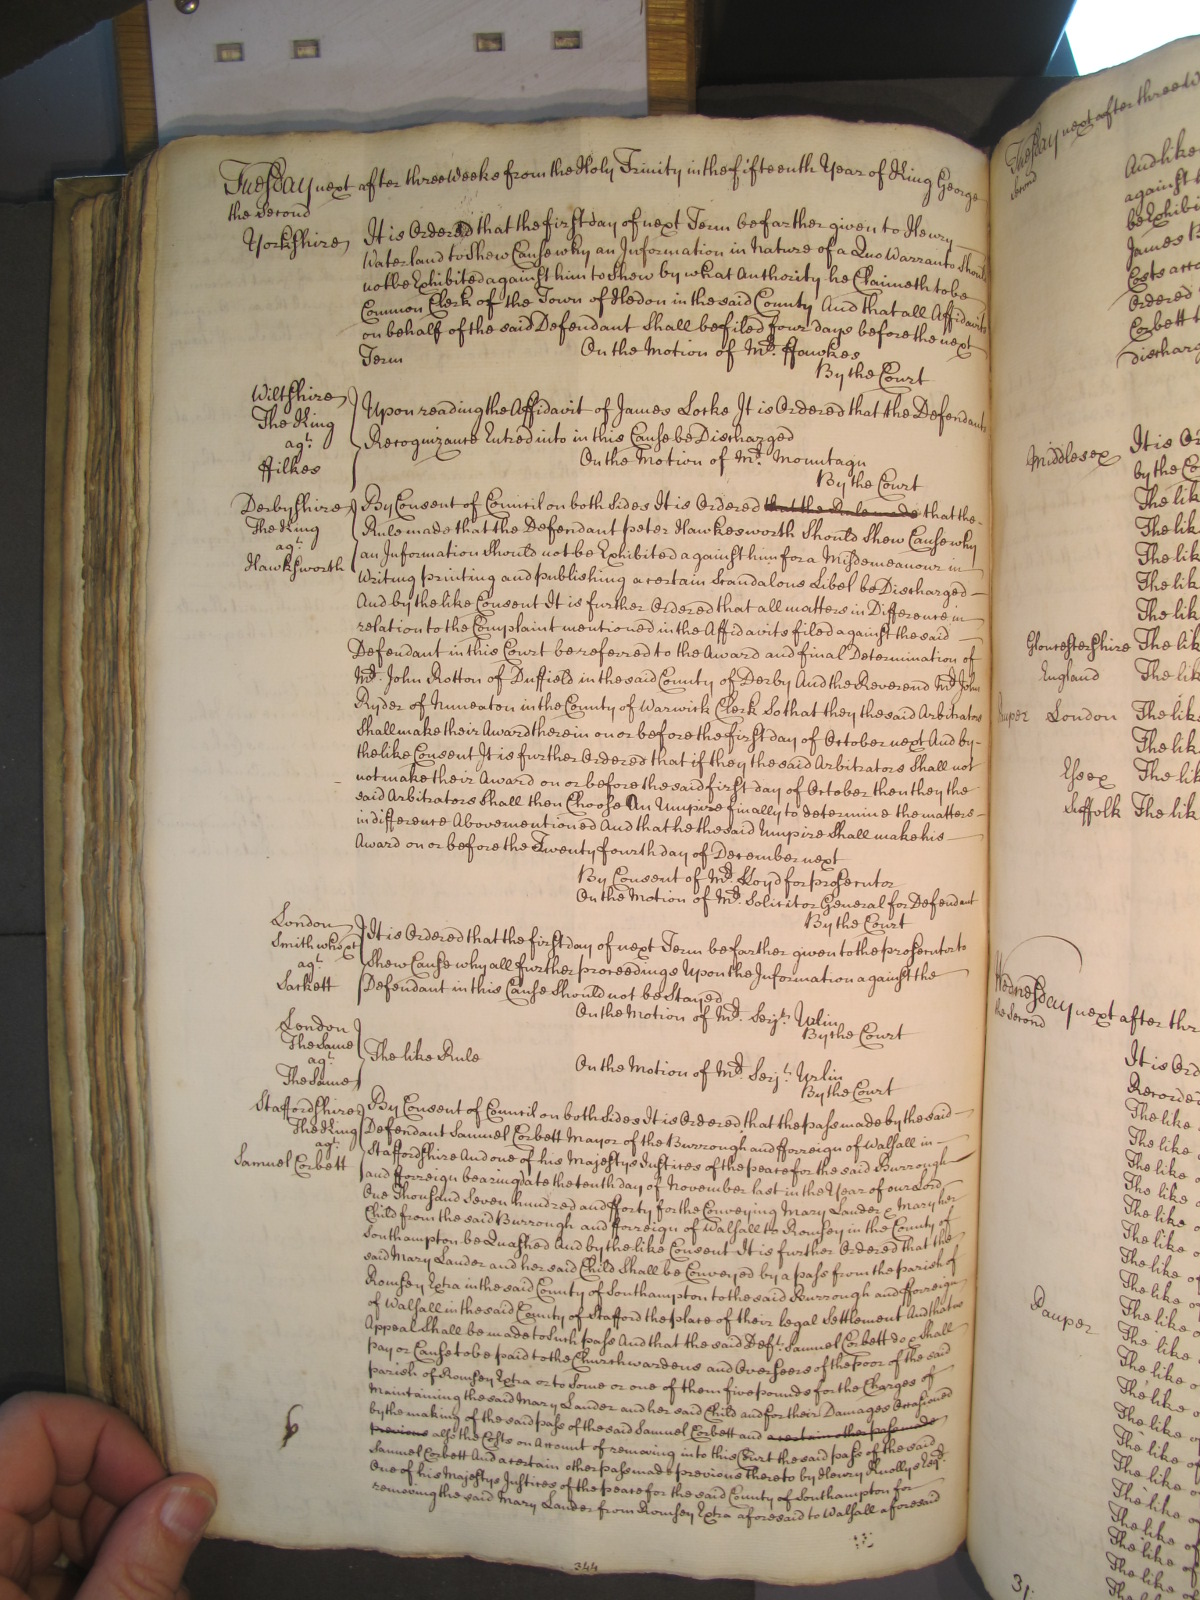 Tuesday next after three Weeks from the Holy Trinity in the fifteenth Year of King George
the Second
Yorkshire
It is Ordered that the first day of next Term be farther given to Henry
Waterland to Shew Cause why an Information in Nature of a Quo Warranto Should
not be Exhibited against him to Shew by what Authority he Claimeth to be
Common Clerk of the Town of Hedon in the said County And that all Affidavits
on behalf of the said Defendant Shall be filed four days before the next
Term
On the Motion of Mr. ffawkes
By the Court
Wiltshire
The King
agt.
ffilkes
Upon reading the Affidavit of James Locke It is Ordered that the Defendants
Recognizance Entred into in this Cause be Discharged
On the Motion of Mr. Mountagu
By the Court
Derbyshire
The King
agt.
Hawksworth
By Consent of Council on both Sides It is Ordered that the Rule made that the
Rule made that the Defendant peter Hawkesworth Should Shew Cause why
an Information Should not be Exhibited against him for a Misdemeanour in
Writing printing and publishing a certain Scandalous Libel be Discharged
And by the like Consent It is further Ordered that all matters in Difference in
relation to the Complaint mentioned in the Affidavits filed against the said
Defendant in this Court be referred to the Award and final Determination of
Mr. John Rotton of Duffield in the said County of Derby And the Reverend Mr. John
Ryder of Nuneaton in the County of Warwick Clerk So that they the said Arbitrators
Shall make their Award therein on or before the first day of October next And by
the like Consent It is further Ordered that if they the said Arbitrators Shall not
not make their Award on or before the said first day of October then they the
said Arbitrators Shall then Choose An Umpire finally to determine the matters
in difference Abovementioned And that he the said Umpire Shall make his
Award on or before the Twenty fourth day of December next
By Consent of Mr. Lloyd for prosecutor
On the Motion of Mr. Solicitor General for Defendant
By the Court
London
Smith who &c
agt.
Sackett
It is Ordered that the first day of next Term be farther given to the prosecutor to
Shew Cause why all further proceedings Upon the Information against the
Defendant in this Cause Should not be Stayed
On the Motion of Mr. Serjt. Urlin
By the Court
London
The Same
agt.
The Same
The like Rule
On the Motion of Mr. Serjt. Urlin
By the Court
Staffordshire
The King
agt.
Samuel Corbett
By Consent of Council on both Sides It is Ordered that the pass made by the said
Defendant Samuel Corbett Mayor of the Burrough and fforreign of Walsall in
Staffordshire And one of his Majestys Justices of the peace for the said Burrough
and fforreign bearing date the tenth day of November last in the Year of our Lord
One Thousand Seven hundred and fforty for the Conveying Mary Lander & Mary her
Child from the said Burrough and fforreign of Walsall to Romsey in the County of
Southampton be Quashed And by the like Consent It is further Ordered that the
said Mary Lander and her said Child Shall be Conveyed by a pass from the parish of
Romsey Extra in the said County of Southampton to the said Burrough and fforreign
of Walsall in the said County of Stafford the place of their legal Settlement And that no
Appeal Shall be made to Such pass And that the said Deft. Samuel Corbett do & Shall
pay or Cause to be paid to the Churchwardens and Overseers of the poor of the said
parish of Romsey Extra or to Some or one of them five pounds for the Charges of
Maintaining the said Mary Lander and her said Child and for their Damages Occasioned
by the making of the said pass of the said Samuel Corbett and a certain other pass made
previous also the Costs on Account of removing into this Court the said pass of the said
Samuel Corbett And a certain other pass made previous thereto by Henry Knollys Esqr.
One of his Majestys Justices of the peace for the said County of Southampton for
removing the said Mary Lander from Romsey Extra aforesaid to Walsall aforesaid
344
Tuesday next after three W
Second
And like
against
be Exhibi
James B
Costs
Ordered
Corbett
discharg
Middlesex
It is Or
by the Co
The lik
The lik
The lik
The lik
The lik
Gloucestershire The lik
England The lik
London The like
The lik
Essex The lik
Suffolk The lik
Wednesday next after thr
the Second
It is Ord
Recorded
The like
The like
The like
The like
The like
The like o
The like
The like o
The like o
Pauper The like o
The like o
The like o
The like o
The like o
The like o
The like o
The like o
The like o
The like o
The like o